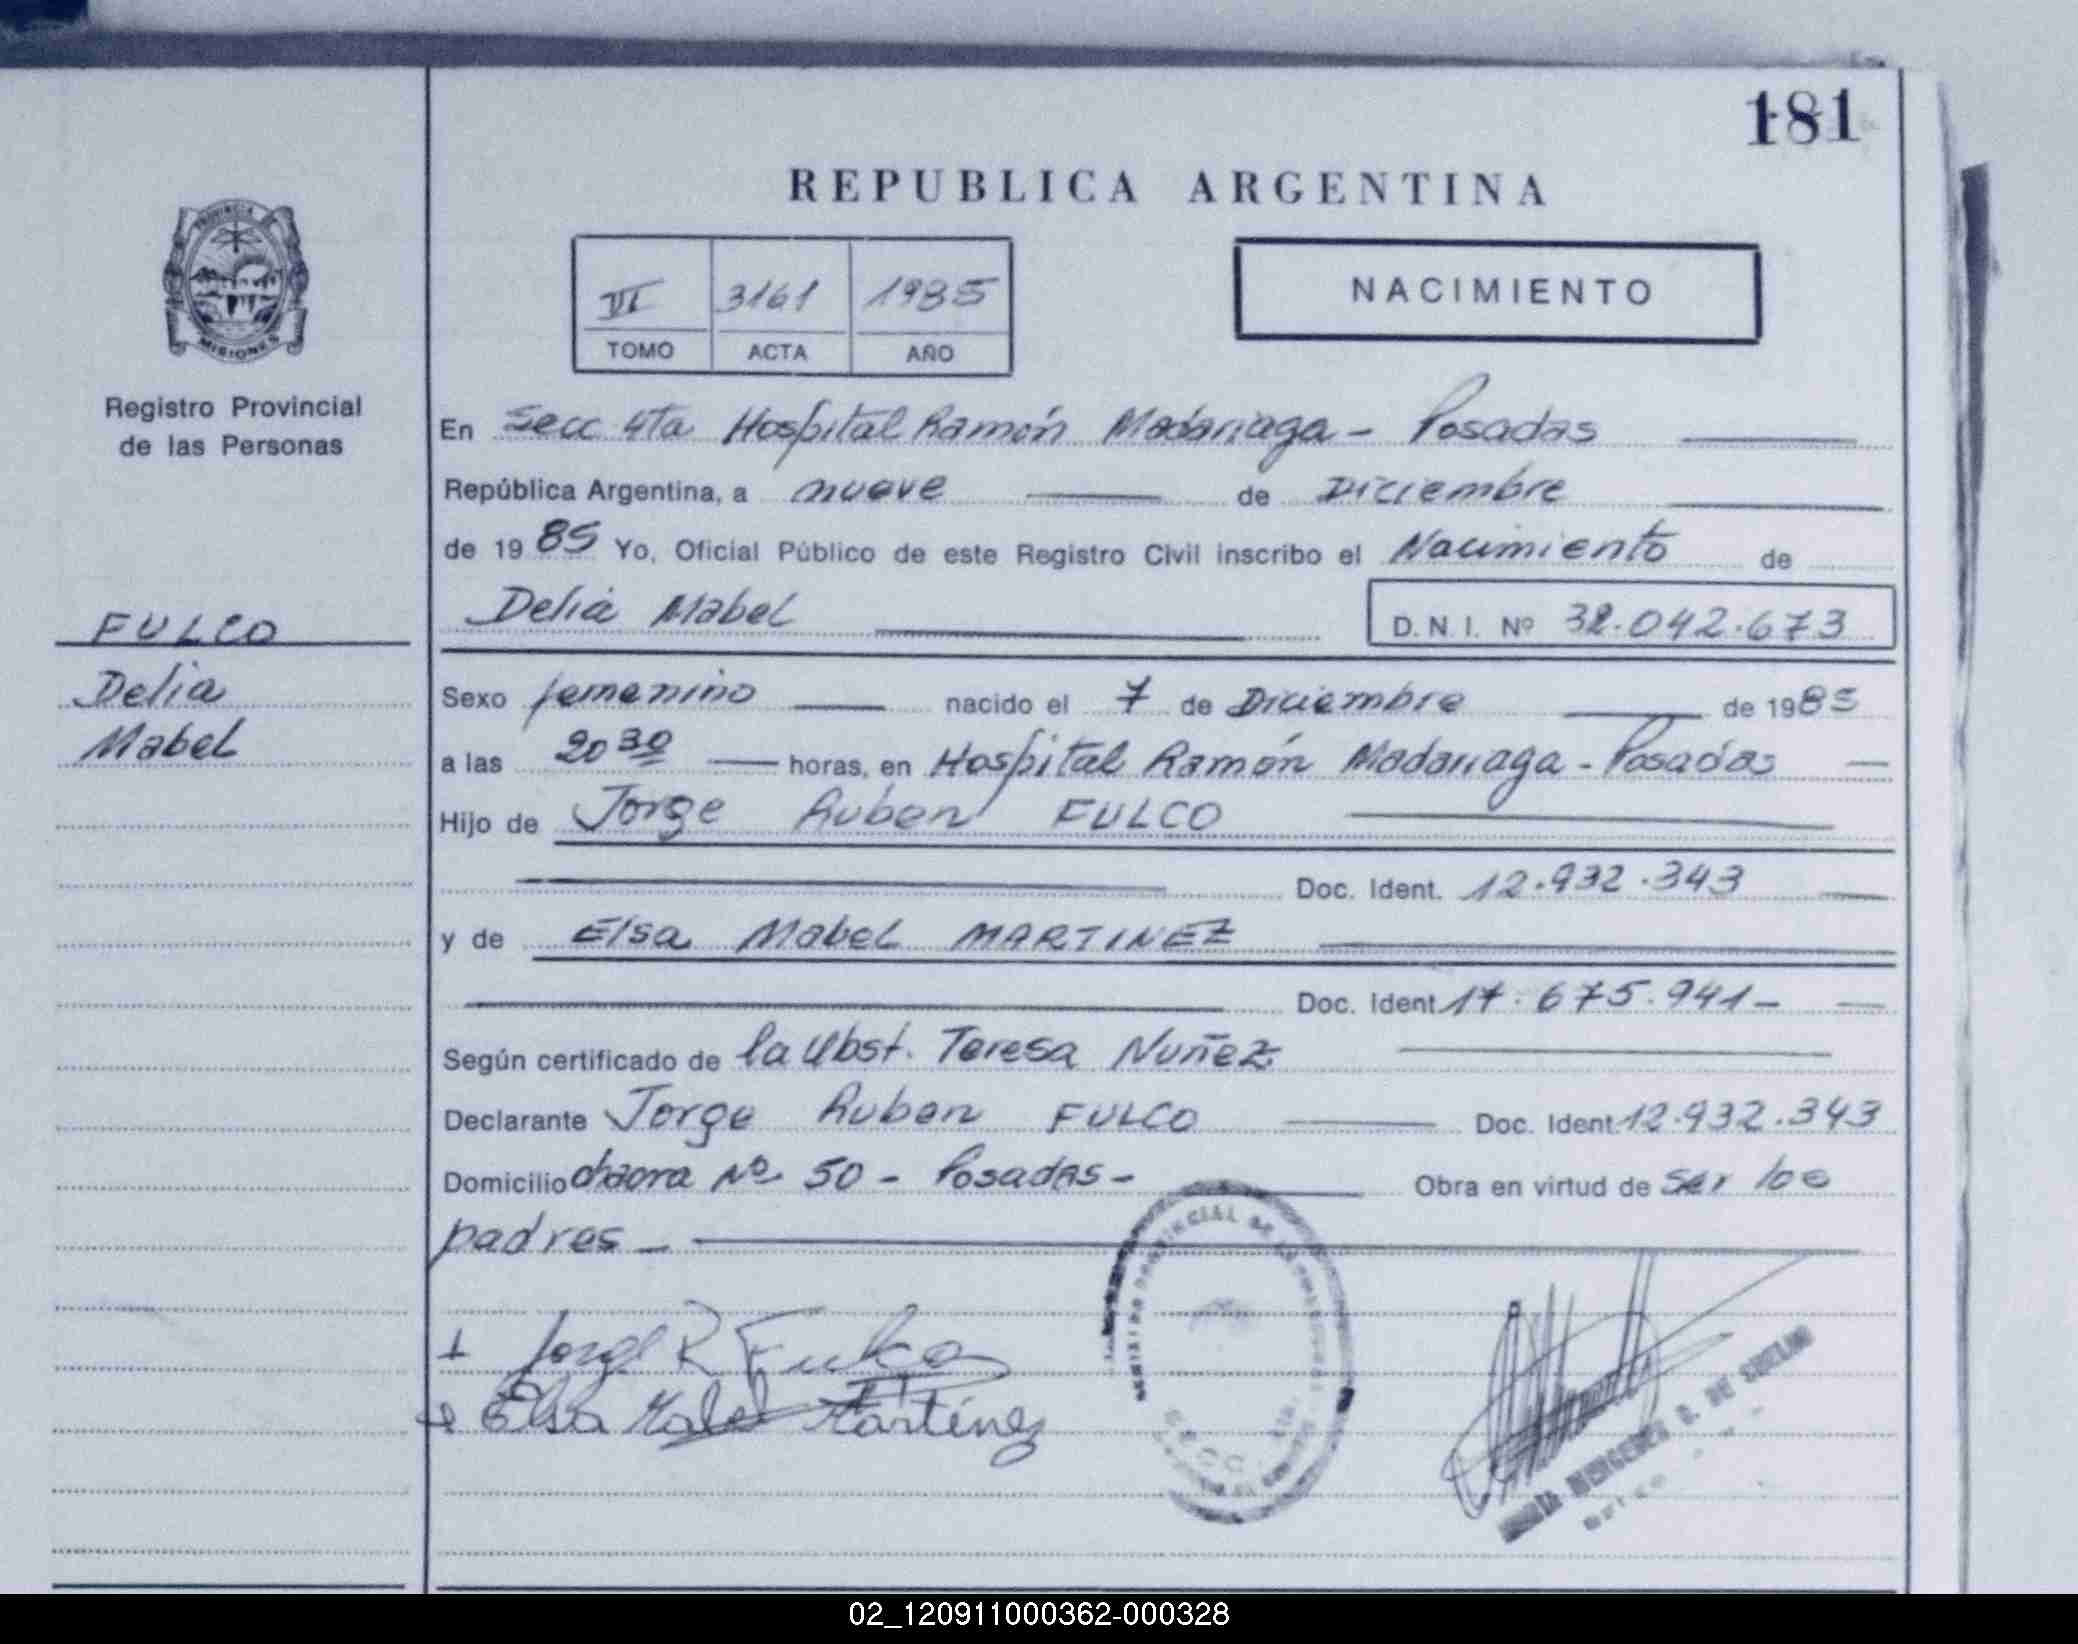 181
REPUBLICA ARGENTINA
PROVINCIA
MISIONES
Registro Provincial
de las Personas
VI 3161 1985
TOMO ACTA AÑO
NACIMIENTO
En Secc 4ta Hospital Ramón Madariaga - Posadas
República Argentina, a nueve de Diciembre
de 1985 Yo, Oficial Público de este Registro Civil inscribo el Nacimiento de
Delia Mabel D.N.I. Nº 32.042.673
FULCO
Delia
Mabel
Sexo femenino nacido el 7 de Diciembre de 1985
a las 20 30 horas, en Hospital Ramón Madariaga - Posadas
Hijo de Jorge Ruben FULCO
Doc. Ident. 12.932.343
y de Elsa Mabel MARTINEZ
Doc. Ident. 17.675.941-
Según certificado de la Obst. Teresa Nuñez
Declarante Jorge Ruben FULCO Doc. Ident. 12.932.343
Domicilio chacra Nº 50 - Posadas - Obra en virtud de ser los
padres -
Jorge R Fulco
Elsa Mabel Martínez
DE SUELDO
02_120911000362-000328